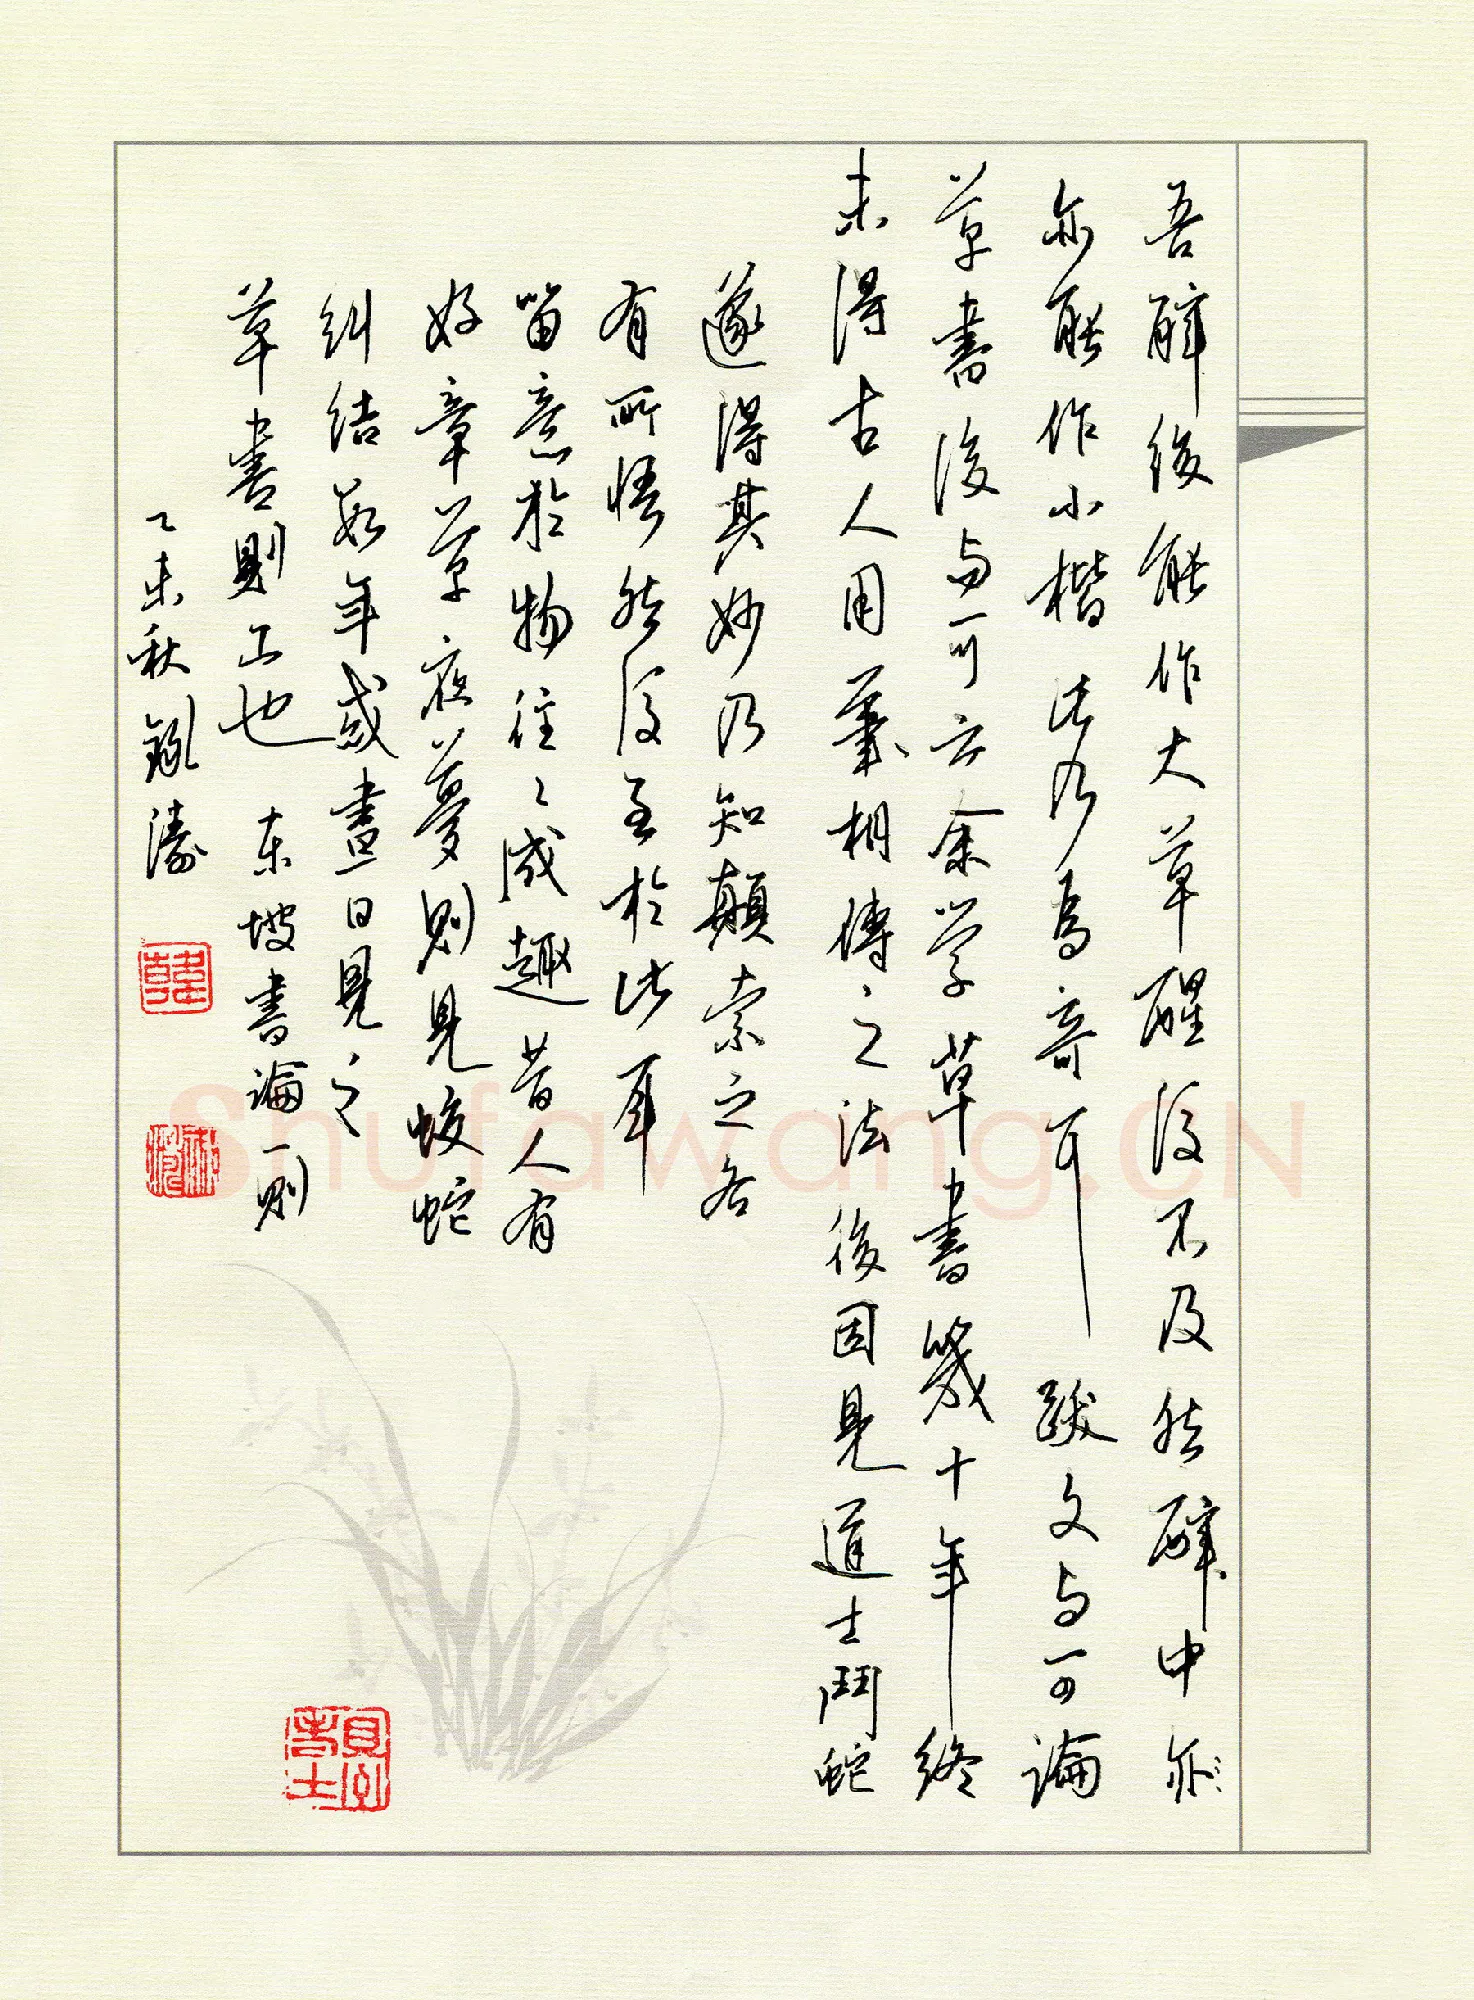 吾醉後能作大草醒後不及然醉中亦
亦能作小楷此乃為奇耳 跋文与可論
草書後与可云余学草書幾十年終
未得古人用筆相傳之法後因見道士鬥蛇
遂得其妙乃知顛索之各
有所悟然後至於此耳
留意於物往〻成趣昔人有
好章草夜夢則見蛟蛇
糾結數年或晝日見之
草書則工也 东坡書論一則
乙未秋 濤
韓
Shufawang.CN